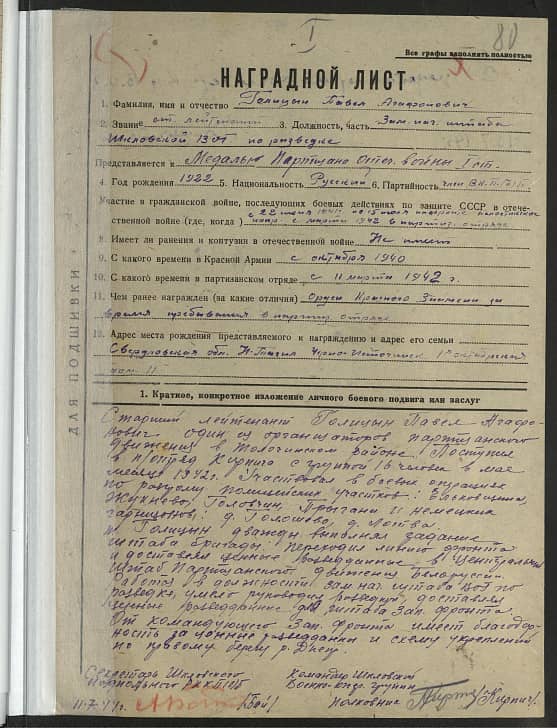 I
80
Все графы заполнять полностью
НАГРАДНОЙ ЛИСТ
1. Фамилия, имя и отчество Голицын Павел Агафонович
2. Звание ст. лейтенант 3. Должность, часть Зам. нач. штаба
Шкловской ВОГ по разведке
Представляется к Медалью Партизану Отеч. войны I ст.
4. Год рождения 1922 5. Национальность Русский 6. Партийность член ВКП(б)
7. Участие в гражданской войне, последующих боевых действиях по защите СССР в отече-
ственной войне (где, когда) с 22 июня 1941 по 15 июля
с марта 1942 в партиз. отряде
8. Имеет ли ранения и контузии в отечественной войне Не имеет
9. С какого времени в Красной Армии с октября 1940
10. С какого времени в партизанском отряде с 11 марта 1942 г.
11. Чем ранее награжден (за какие отличия) Орден Красного Знамени за
время пребывания в партиз. отряде
12. Адрес места рождения представляемого к награждению и адрес его семьи
Свердловская обл. Н-Тагил Черно-Источинск 1я октябрьская
дом 11
ДЛЯ ПОДШИВКИ
1. Краткое, конкретное изложение личного боевого подвига или заслуг
Старший лейтенант Голицын Павел Агафо-
нович один из организаторов партизанского
движения в Толочинском районе. Поступил
в п/отряд Кирпича с группой 16 человек в мае
месяце 1942 г. Участвовал в боевых операциях
по разгрому полицейских участков: Ельковщина,
Жухнево, Головчин, Прыгани и немецких
гарнизонов: д. Голошово, д. Лотва.
т. Голицын дважды выполнял задание
штаба бригады. Переходил линию фронта
и доставлял ценные разведданные в Центральный
штаб Партизанского движения Белоруссии.
Работая в должности зам. нач. штаба ВОГ по
разведке, умело руководил разведкой, доставлял
ценные разведданные для штаба Зап. фронта.
От командующего Зап. фронта имеет благодар-
ность за ценные разведданные и схему укреплений
по правому берегу р. Днепр.
Секретарь Шкловского
РК КП(б)Б
(Бай)
11-7-44 г.
Командир Шкловской
Военно-опер. группы
Полковник (Кирпич)